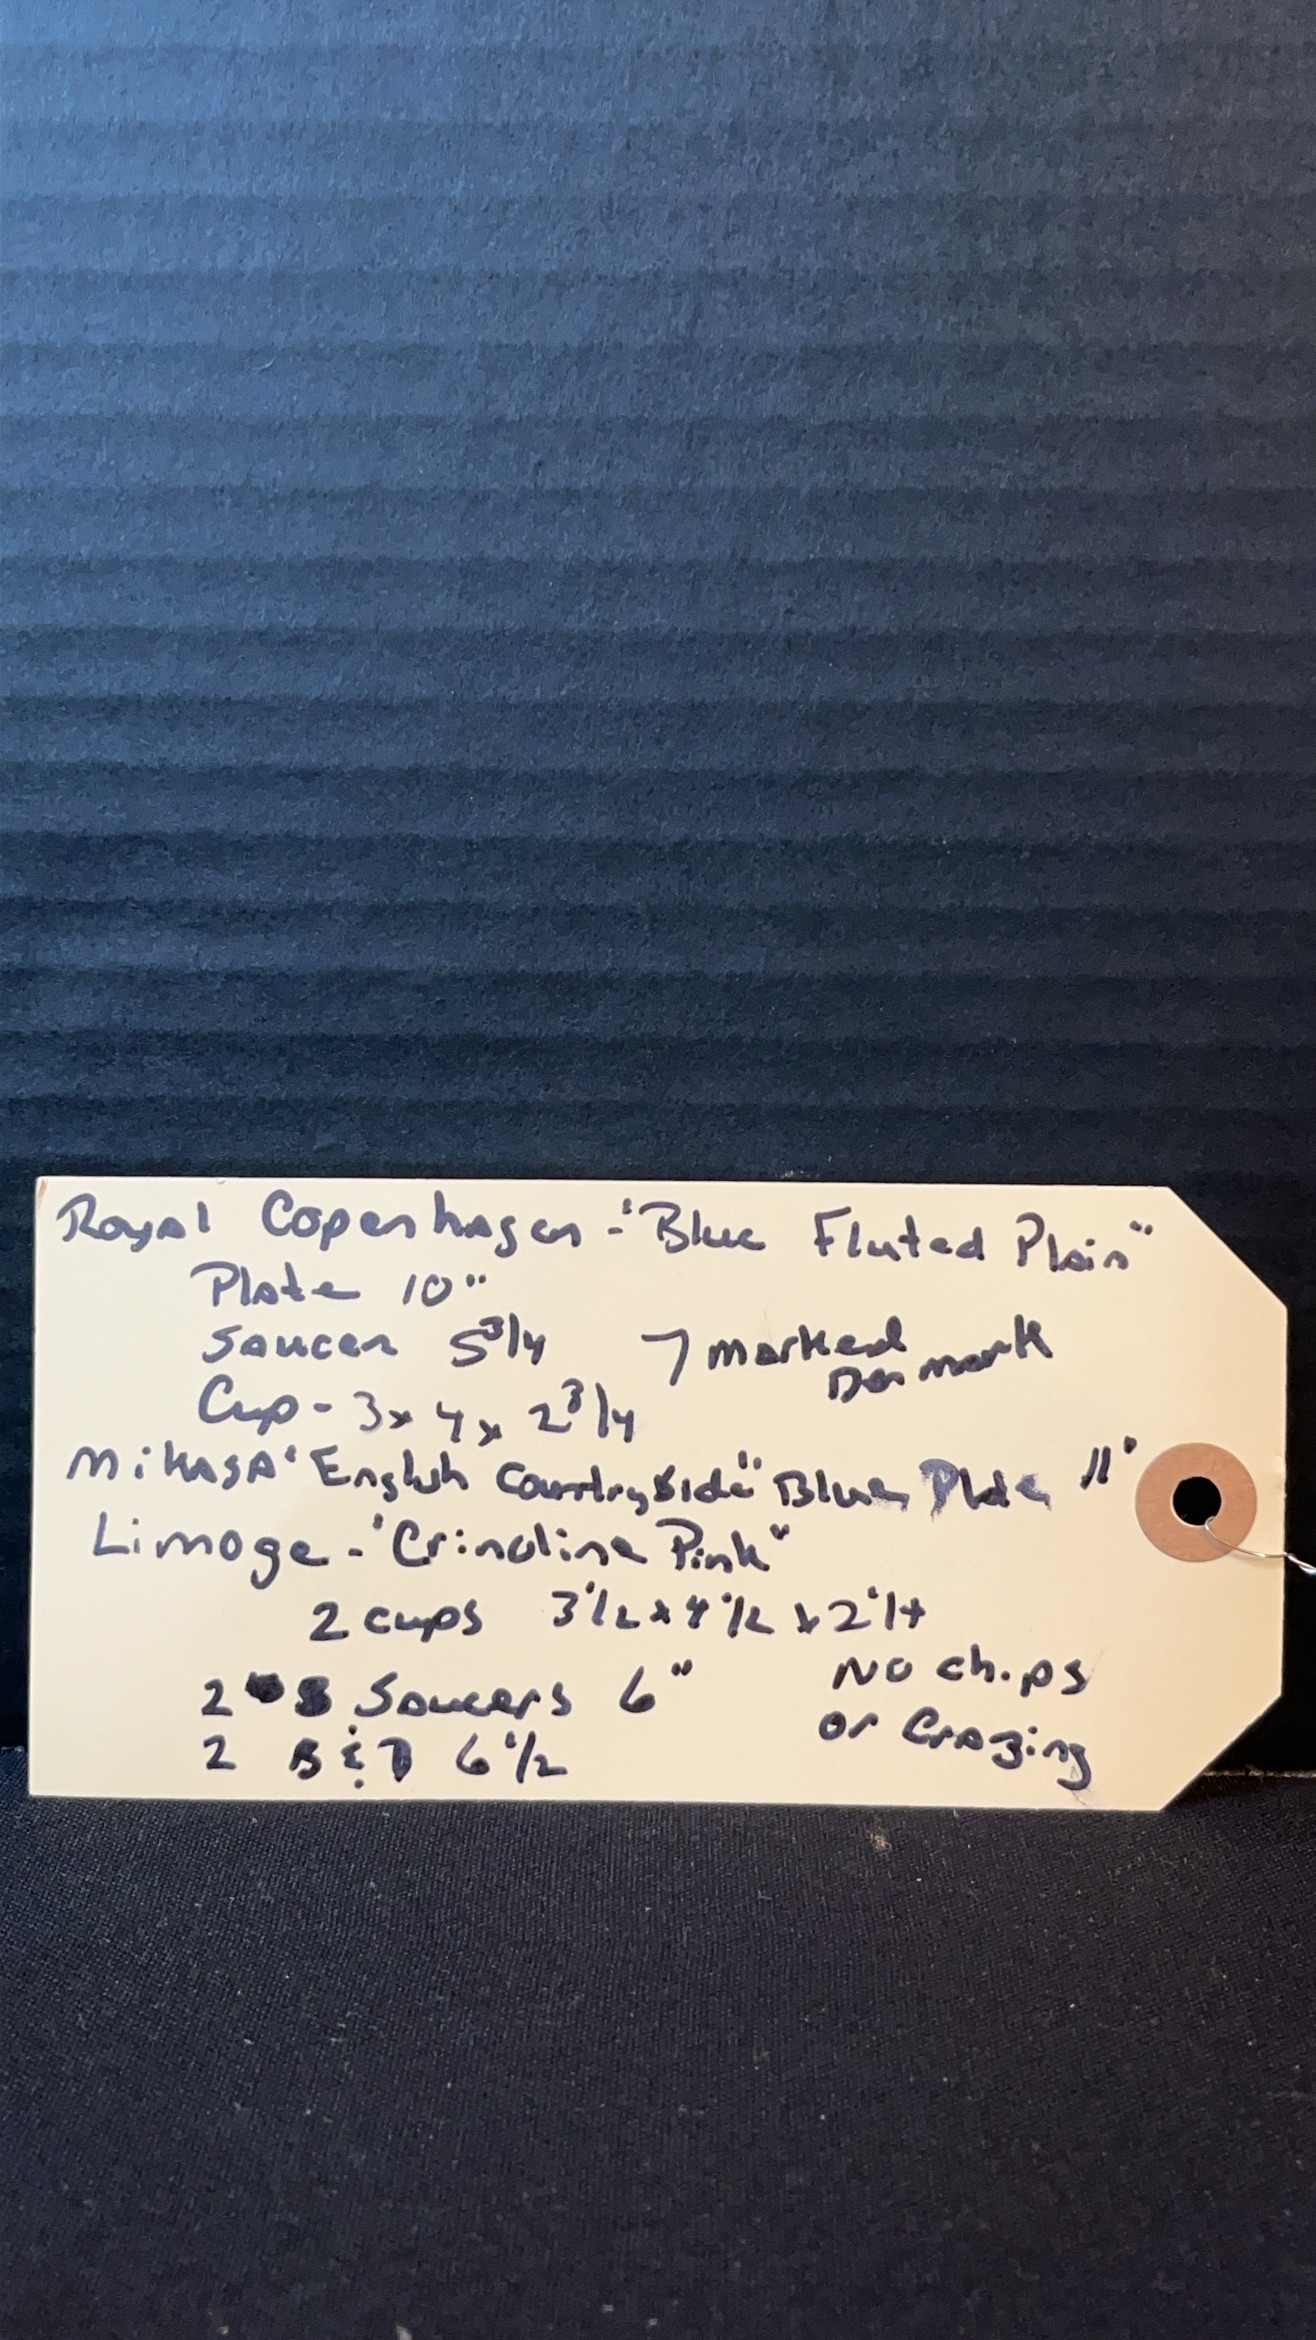 Royal Copenhagen - "Blue Fluted Plain"
Plate 10"
Saucer 5 3/4 7 marked Denmark
Cup - 3 x 4 x 2 3/4
Mikasa "English Countryside" Blue Plate 11"
Limoge - "Crinoline Pink"
2 cups 3 1/2 x 4 1/2 x 2 1/4
2 Saucers 6" No chips
2 B & B 6 1/2 or Crazing